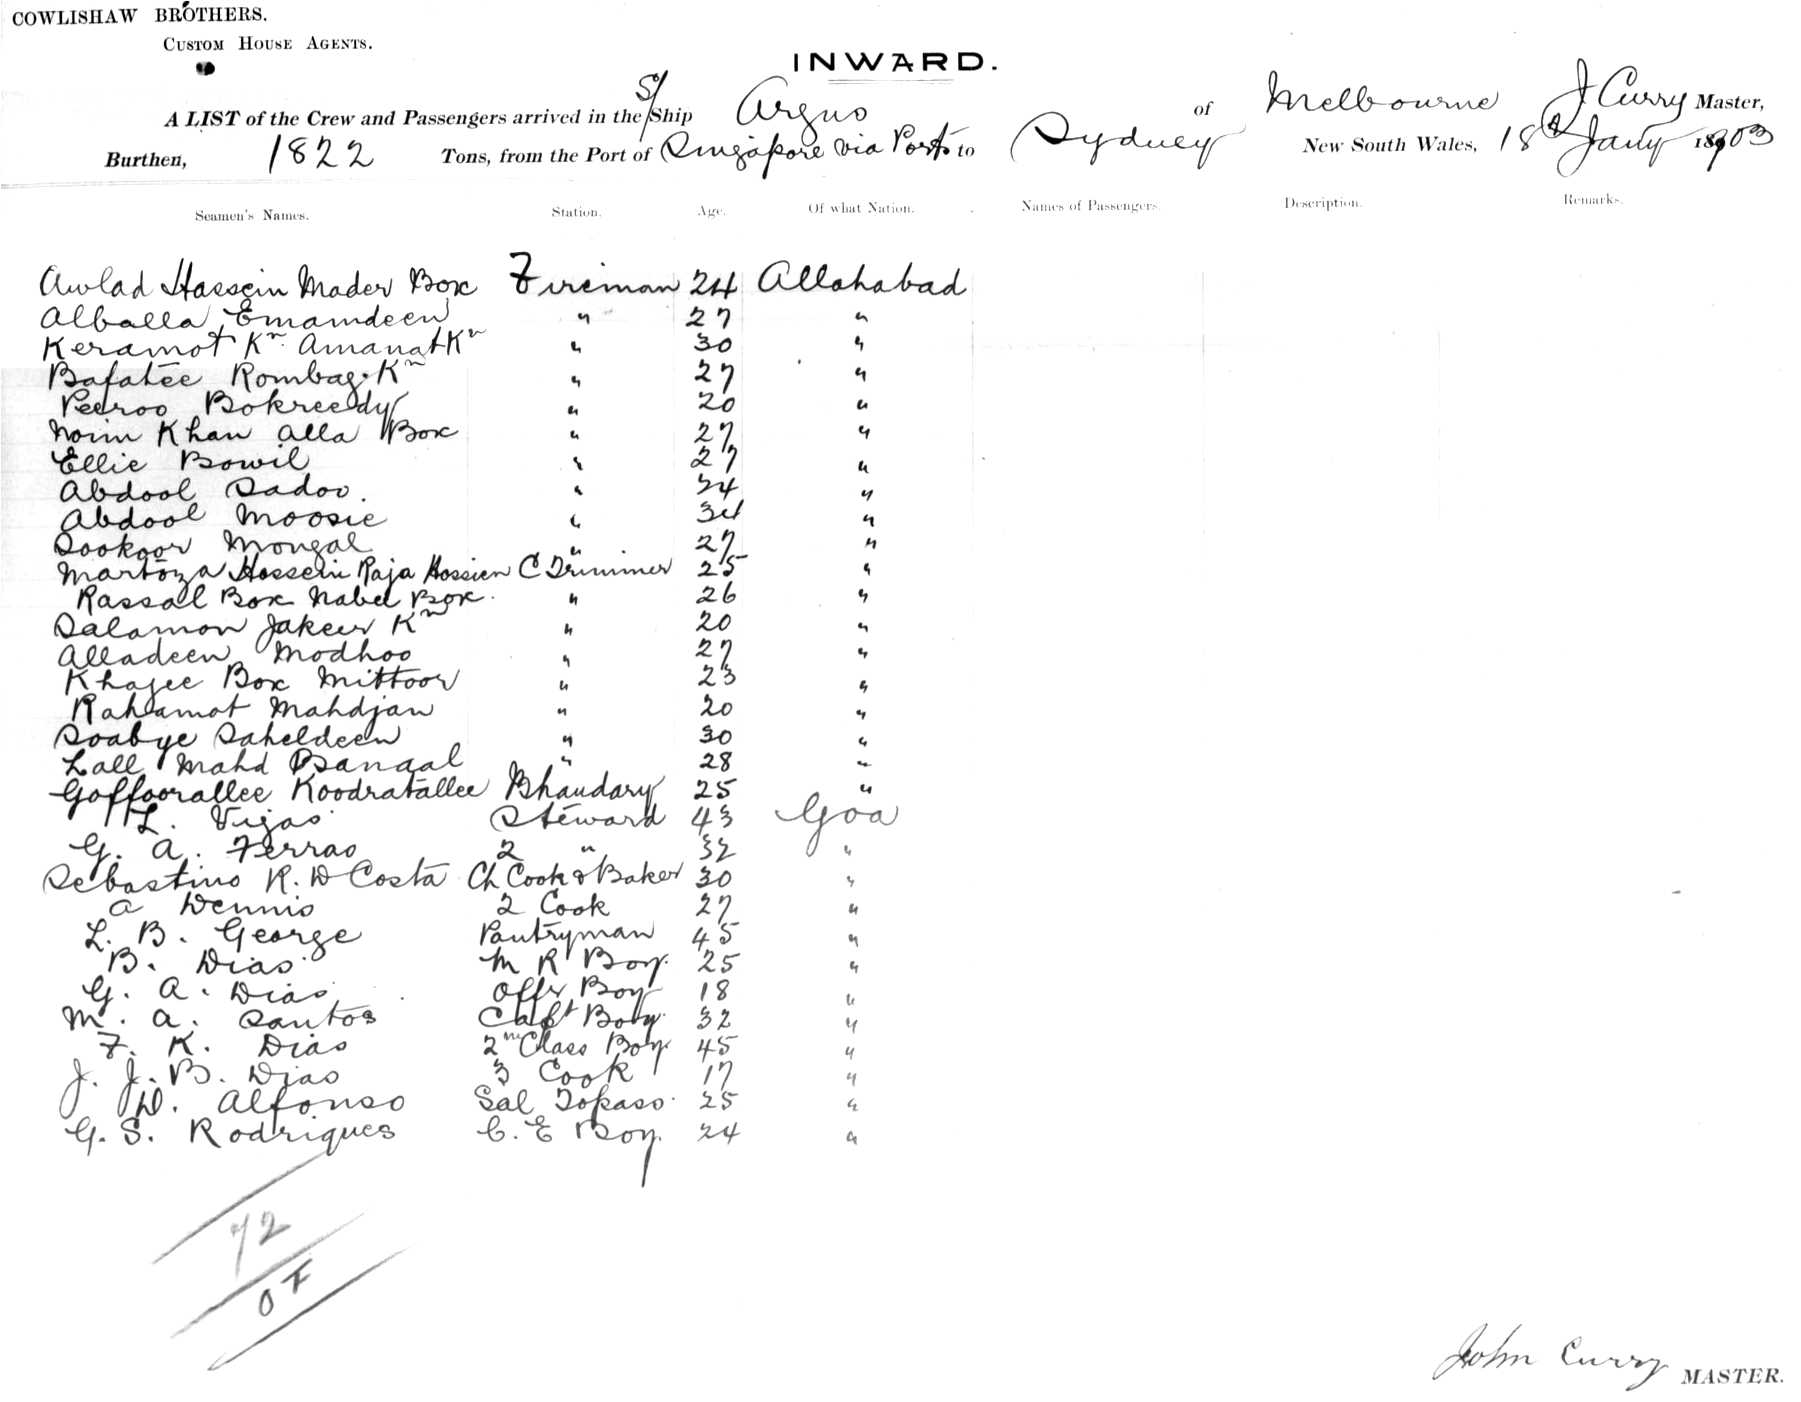 COWLISHAW BROTHERS.
CUSTOM HOUSE AGENTS.
INWARD.
A LIST of the Crew and Passengers arrived in the S/Ship Argus of Melbourne J Curry Master,
Burthen, 1822 Tons, from the Port of Singapore via Ports to Sydney New South Wales, 18th Jany 1903
Seamen's Names. Station. Age. Of what Nation. Names of Passengers. Description. Remarks.
Awlad Hassein Mader Box Fireman 24 Allahabad
Alballa Emamdeen " 27 "
Keramot Kn. Amanat Kn " 30 "
Bafatee Rombag. Kn " 27 "
Peeroo Bokreedy " 20 "
Noim Khan Alla Box " 27 "
Ellie Bowil " 27 "
Abdool Sadoo. " 24 "
Abdool Moosie " 34 "
Sookoor Mongal " 27 "
Martoza Hossein Raja Hossien C Trimmer 25 "
Rassal Box Nabee Box. " 26 "
Salamon Jakeer Kn " 20 "
Alladeen Modhoo " 27 "
Khajee Box Mittoor " 23 "
Rahamot Mahdjan " 20 "
Soabye Saheldeen " 30 "
Lall Mahd Bangal " 28 "
Goffoorallee Koodratallee Bhandary 25 "
L. Vigas Steward 43 Goa
G. A. Ferrao 2 " 32 "
Sebastino R. D Costa Ch Cook & Baker 30 "
A Dennis 2 Cook 27 "
L. B. George Pantryman 45 "
B. Dias M R Boy. 25 "
G. A. Dias Offr Boy 18 "
M. A. Santos Capt Boy. 32 "
F. K. Dias 2nd Class Boy. 45 "
J. J. B. Dias 3 Cook 17 "
D. Alfonso Sal Topaso. 25 "
G. S. Rodrigues C. E Boy. 24 "
72
OF
John Curry MASTER.